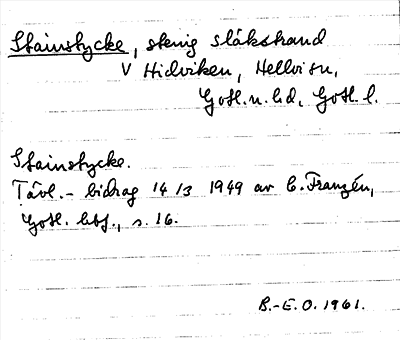 Stainstycke, stenig släkstrand
V Hidviken, Hellvi sn,
Gotl. n. hd, Gotl. l.
Stainstycke.
Tävl.- bidrag 14/3 1949 av C. Franzén,
Gotl. hbf., s. 16.
B.-E.O. 1961.